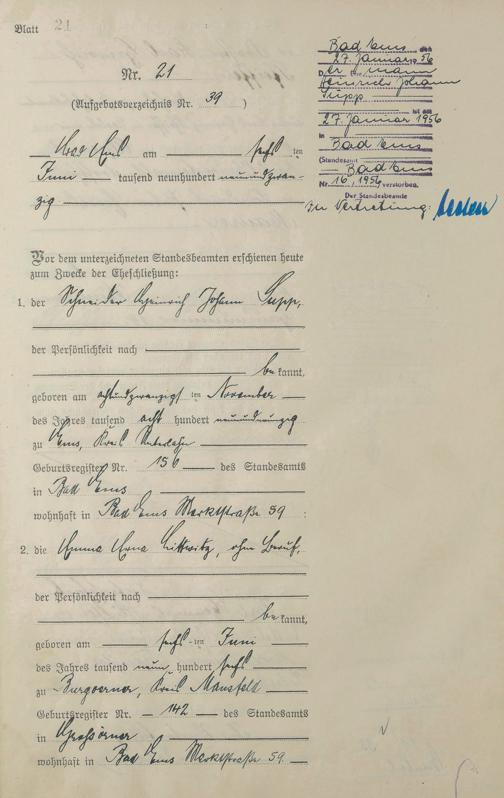 Blatt 21
Nr. 21
(Aufgebotsverzeichnis Nr. 39)
Bad Ems am sechsten
Juni tausend neunhundert neunundzwan-
zig
Vor dem unterzeichneten Standesbeamten erschienen heute
zum Zwecke der Eheschließung:
1. der Schneider Heinrich Johann Supp,
der Persönlichkeit nach
bekannt,
geboren am achtundzwanzigsten November
des Jahres tausend acht hundert neunundneunzig
zu Ems, Kreis Unterlahn
Geburtsregister Nr. 156 des Standesamts
in Bad Ems
wohnhaft in Bad Ems Marktstraße 59
2. die Emma Erna Littwitz, ohne Beruf,
der Persönlichkeit nach
bekannt,
geboren am sechsten Juni
des Jahres tausend neun hundert sechs
zu Burgörner, Kreis Mansfeld
Geburtsregister Nr. 142 des Standesamts
in Großörner
wohnhaft in Bad Ems Marktstraße 59.
Bad Ems, den
27. Januar 1956
Der Ehemann
Heinrich Johann
Supp
ist am
27. Januar 1956
in Bad Ems
(Standesamt Bad Ems
Nr. 16/1956) verstorben.
Der Standesbeamte
In Vertretung: